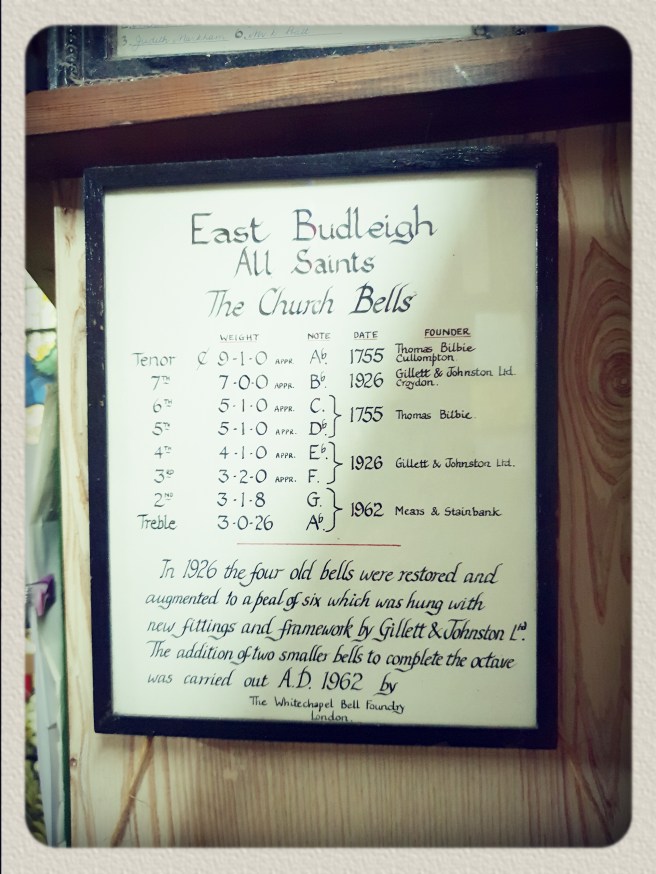 East Budleigh
All Saints
The Church Bells
WEIGHT NOTE DATE FOUNDER
Tenor ₵ 9-1-0 APPR. A♭ 1755 Thomas Bilbie Cullompton
7TH 7-0-0 APPR. B♭ 1926 Gillett & Johnston Ltd. Croydon.
6TH 5-1-0 APPR. C. } 1755 Thomas Bilbie
5TH 5-1-0 APPR. D♭.
4TH 4-1-0 APPR. E♭. } 1926 Gillett & Johnston Ltd.
3RD 3-2-0 APPR. F.
2ND 3-1-8 G. } 1962 Mears & Stainbank
Treble 3-0-26 A♭.
In 1926 the four old bells were restored and
augmented to a peal of six which was hung with
new fittings and framework by Gillett & Johnston Ltd.
The addition of two smaller bells to complete the octave
was carried out A.D. 1962 by
The Whitechapel Bell Foundry
London.